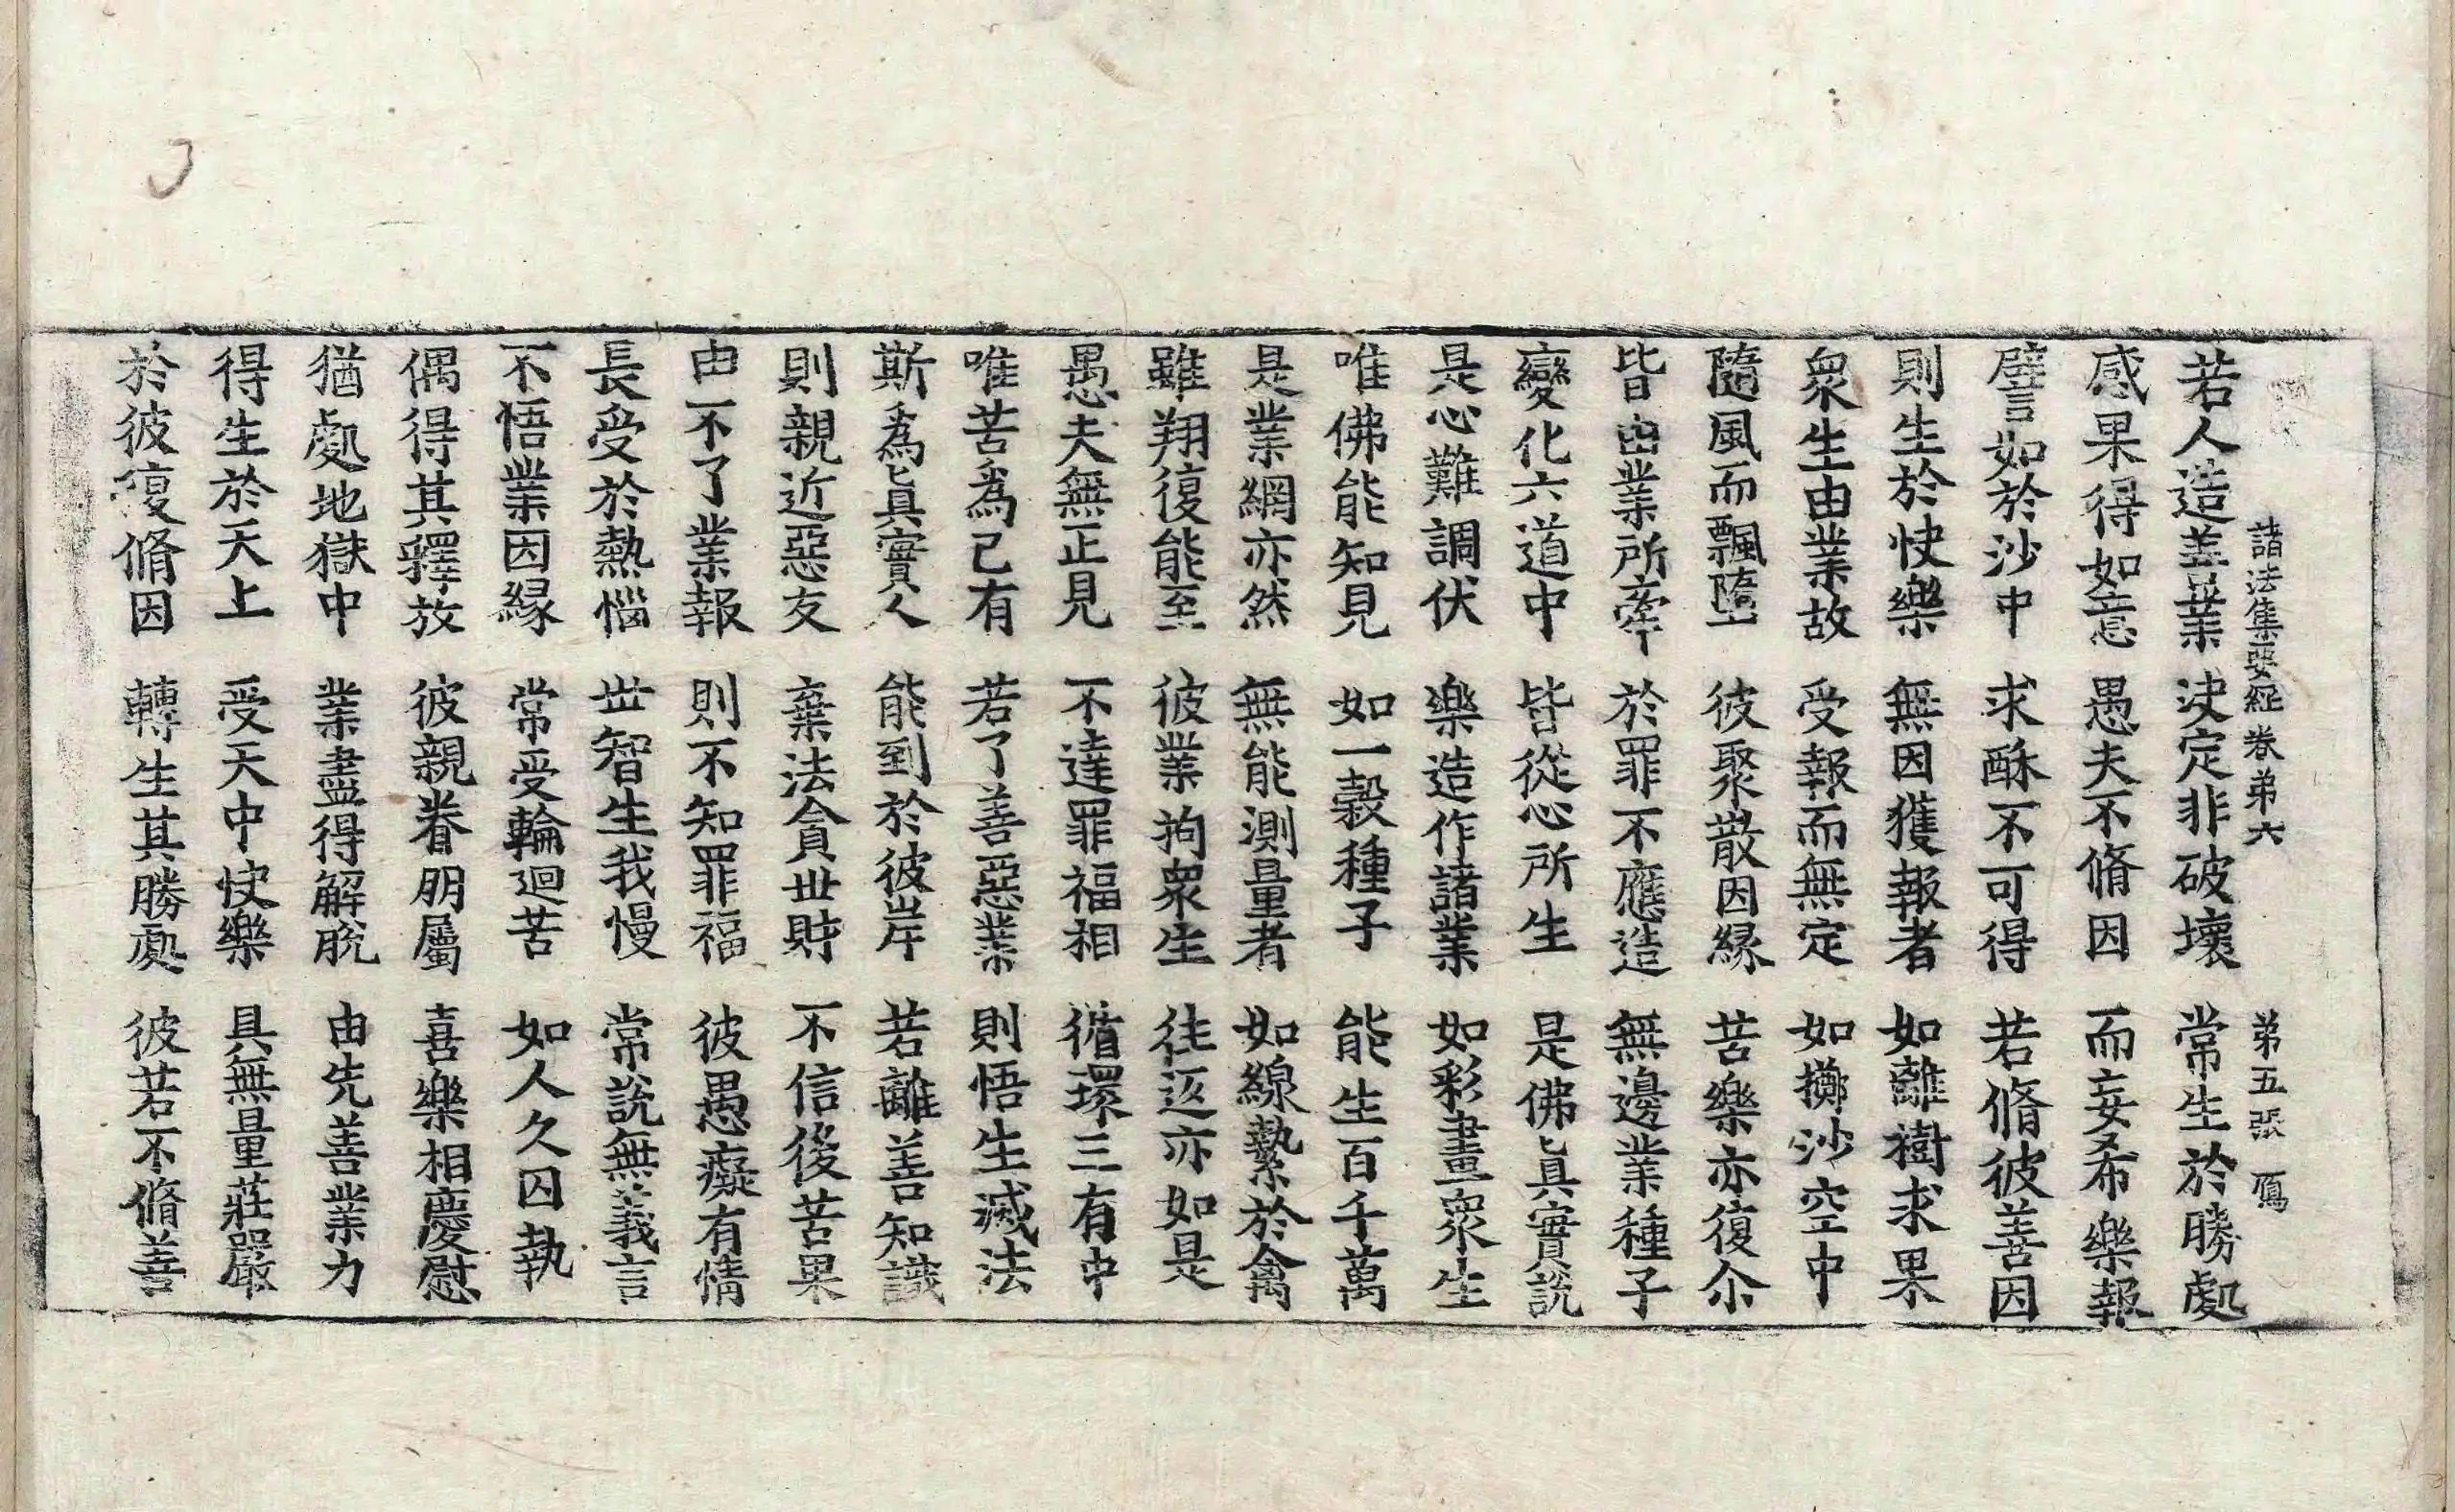 諸法集要經卷弟六　弟五張　鴈
若人造善業　決定非破壞　常生於勝處
感果得如意　愚夫不脩因　而妄希樂報
譬如於沙中　求酥不可得　若脩彼善因
則生於快樂　無因獲報者　如離樹求果
衆生由業故　受報而無定　如擲沙空中
隨風而飄墮　彼聚散因緣　苦樂亦復尒
皆由業所牽　於罪不應造　無邊業種子
變化六道中　皆從心所生　是佛眞實說
是心難調伏　樂造作諸業　如彩畫衆生
唯佛能知見　如一糓種子　能生百千萬
是業網亦然　無能測量者　如線繫於禽
雖翔復能至　彼業拘衆生　往返亦如是
愚夫無正見　不達罪福相　循環三有中
唯苦爲己有　若了善惡業　則悟生滅法
斯爲眞實人　能到於彼岸　若離善知識
則親近惡友　棄法貪丗財　不信後苦果
由不了業報　則不知罪福　彼愚癡有情
長受於熱惱　丗智生我慢　常說無義言
不悟業因緣　常受輪迴苦　如人久囚執
偶得其釋放　彼親眷朋屬　喜樂相慶慰
猶處地獄中　業盡得解脫　由先善業力
得生於天上　受天中快樂　具無量莊嚴
於彼復脩因　轉生其勝處　彼若不脩善